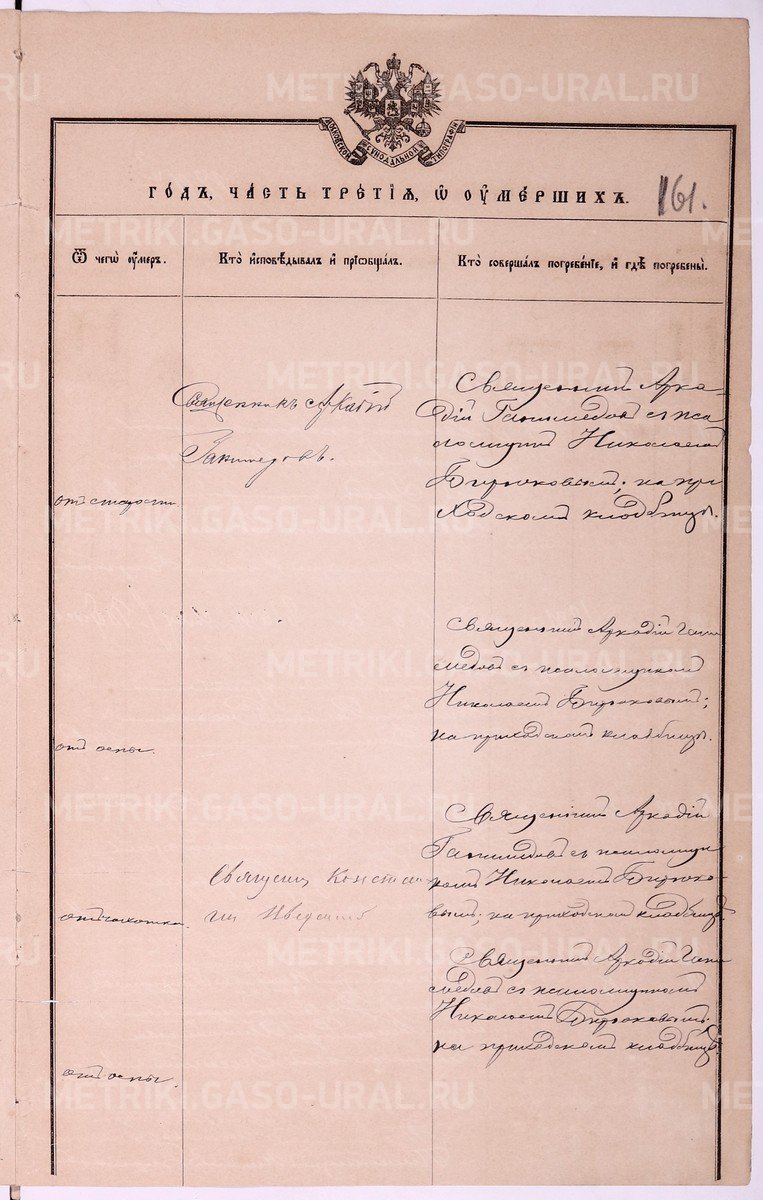 МОСКОВСКОЙ СѴНОДАЛЬНОЙ ТИПОГРАФІИ
ГОДЪ, ЧАСТЬ ТРЕТІЯ, Ѡ ОУМЕРШИХЪ.
161.
Ѿ чегѡ оумеръ.
Кто исповѣдывалъ и пріѡбщалъ.
Кто совершалъ погребеніе, и гдѣ погребены.
Священникъ Аркадій
Ганимедовъ.
отъ старости
Священникъ Арка-
дій Ганимедовъ съ пса-
ломщикомъ Николаемъ
Бирюковымъ; на при-
ходскомъ кладбищѣ.
отъ оспы.
Священникъ Аркадій Гани
медовъ съ псаломщикомъ
Николаемъ Бирюковымъ;
на приходскомъ кладбищѣ.
отъ чахотки.
Священникъ Констан
тинъ
Священникъ Аркадій
Ганимедовъ съ псаломщи
комъ Николаемъ Бирюко-
вымъ; на приходскомъ кладбищѣ
отъ оспы.
Священникъ Аркадій Гани
медовъ съ псаломщикомъ
Николаемъ Бирюковымъ
на приходскомъ кладбищѣ
METRIKI.GASO-URAL.RU